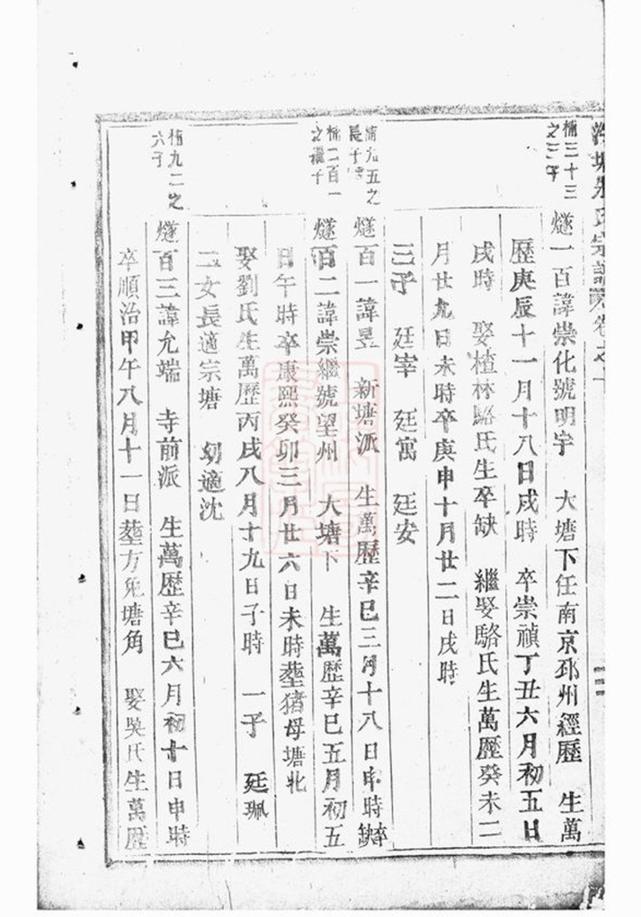 氏宗譜卷之十
楠三十三
之三子
燧一百諱崇化號明宇 大塘下任南京邳州經歷 生萬
歷庚辰十一月十八日戌時 卒崇禎丁丑六月初五日
戌時 娶楂林駱氏生卒缺 繼娶駱氏生萬歷癸未二
月廿九日未時卒庚申十月廿二日戌時
三子 廷宰 廷寓 廷安
楠九五之
長子
燧百一諱昱 新塘派 生萬歷辛巳三月十八日申時缺
楠二百一
之繼子
燧百二諱崇繼號望州 大塘下 生萬歷辛巳五月初五
日午時卒康熙癸卯三月廿六日未時塟猪母塘北
娶劉氏生萬歷丙戌八月十九日子時 一子 廷珮
二女長適宗塘 幼適沈
楠九二之
六子
燧百三諱允端 寺前派 生萬歷辛巳六月初十日申時
卒順治甲午八月十一日塟方兎塘角 娶吳氏生萬歷